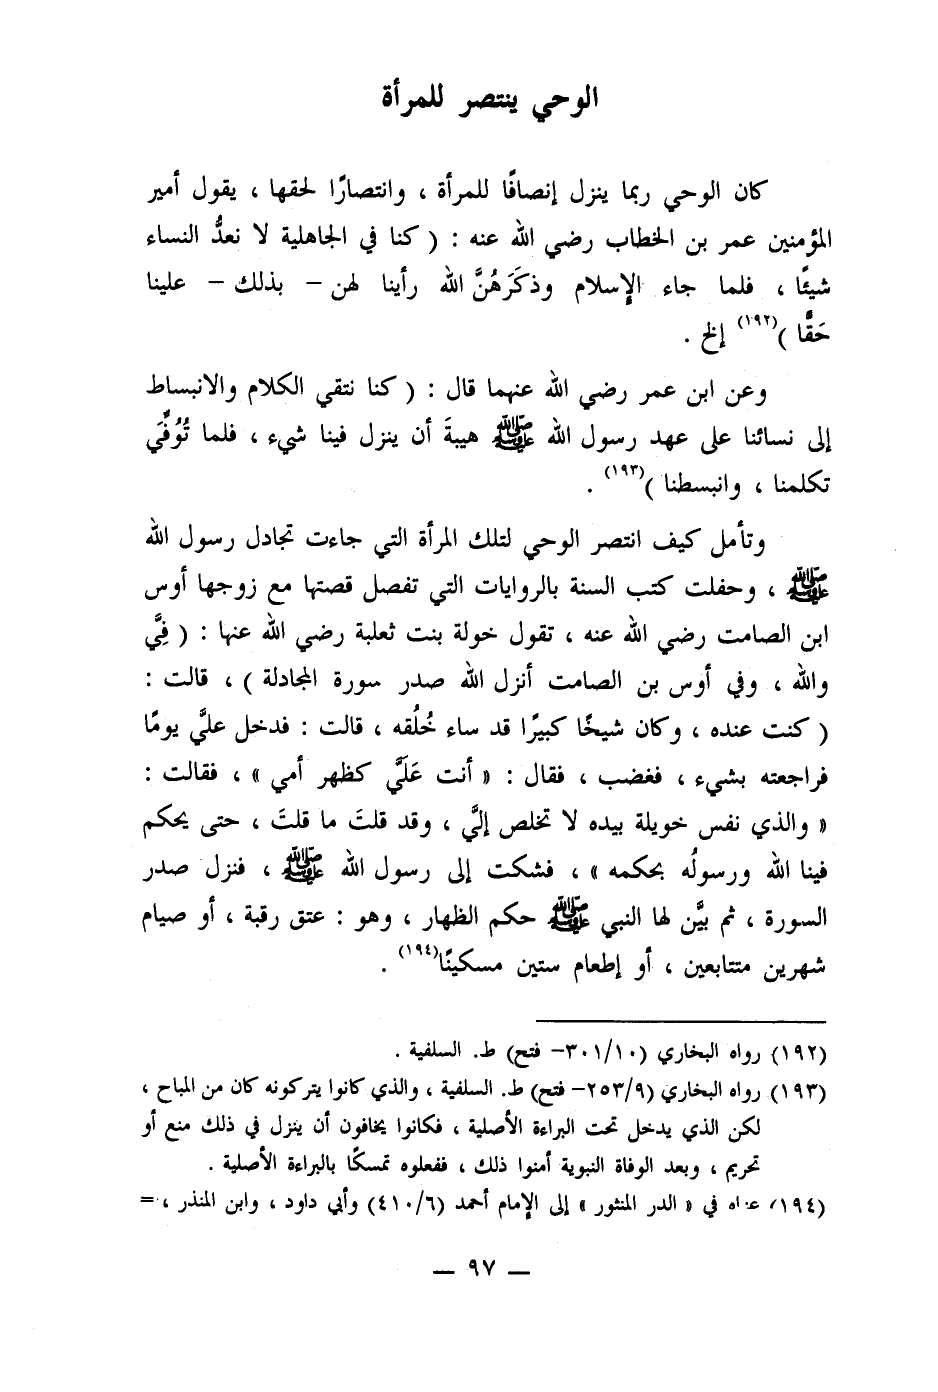 الوحي ينتصر للمرأة
كان الوحي ربما ينزل إنصافًا للمرأة ، وانتصارًا لحقها ، يقول أمير
المؤمنين عمر بن الخطاب رضي الله عنه : ( كنا في الجاهلية لا نعدُّ النساء
شيئًا ، فلما جاء الإسلام وذكَرَهُنَّ الله رأينا لهن – بذلك – علينا
حَقًّا )(١٩٢) إلخ .
وعن ابن عمر رضي الله عنهما قال : ( كنا نتقي الكلام والانبساط
إلى نسائنا على عهد رسول الله ﷺ هيبةَ أن ينزل فينا شيء ، فلما تُوُفِّيَ
تكلمنا ، وانبسطنا )(١٩٣) .
وتأمل كيف انتصر الوحي لتلك المرأة التي جاءت تجادل رسول الله
ﷺ ، وحفلت كتب السنة بالروايات التي تفصل قصتها مع زوجها أوس
ابن الصامت رضي الله عنه ، تقول خولة بنت ثعلبة رضي الله عنها : ( فِيَّ
والله ، وفي أوس بن الصامت أنزل الله صدر سورة المجادلة ) ، قالت :
( كنت عنده ، وكان شيخًا كبيرًا قد ساء خُلُقه ، قالت : فدخل عليَّ يومًا
فراجعته بشيء ، فغضب ، فقال : « أنت عَلَيَّ كظهر أمي » ، فقالت :
« والذي نفس خويلة بيده لا تخلص إليَّ ، وقد قلتَ ما قلتَ ، حتى يحكم
فينا الله ورسولُه بحكمه » ، فشكت إلى رسول الله ﷺ ، فنزل صدر
السورة ، ثم بيَّن لها النبي ﷺ حكم الظهار ، وهو : عتق رقبة ، أو صيام
شهرين متتابعين ، أو إطعام ستين مسكينًا(١٩٤) .
(١٩٢) رواه البخاري (٣٠١/١٠– فتح) ط. السلفية .
(١٩٣) رواه البخاري (٢٥٣/٩– فتح) ط. السلفية ، والذي كانوا يتركونه كان من المباح ،
لكن الذي يدخل تحت البراءة الأصلية ، فكانوا يخافون أن ينزل في ذلك منع أو
تحريم ، وبعد الوفاة النبوية أمنوا ذلك ، ففعلوه تمسكًا بالبراءة الأصلية .
(١٩٤) عزاه في « الدر المنثور » إلى الإمام أحمد (٤١٠/٦) وأبي داود ، وابن المنذر ، =
— ٩٧ —